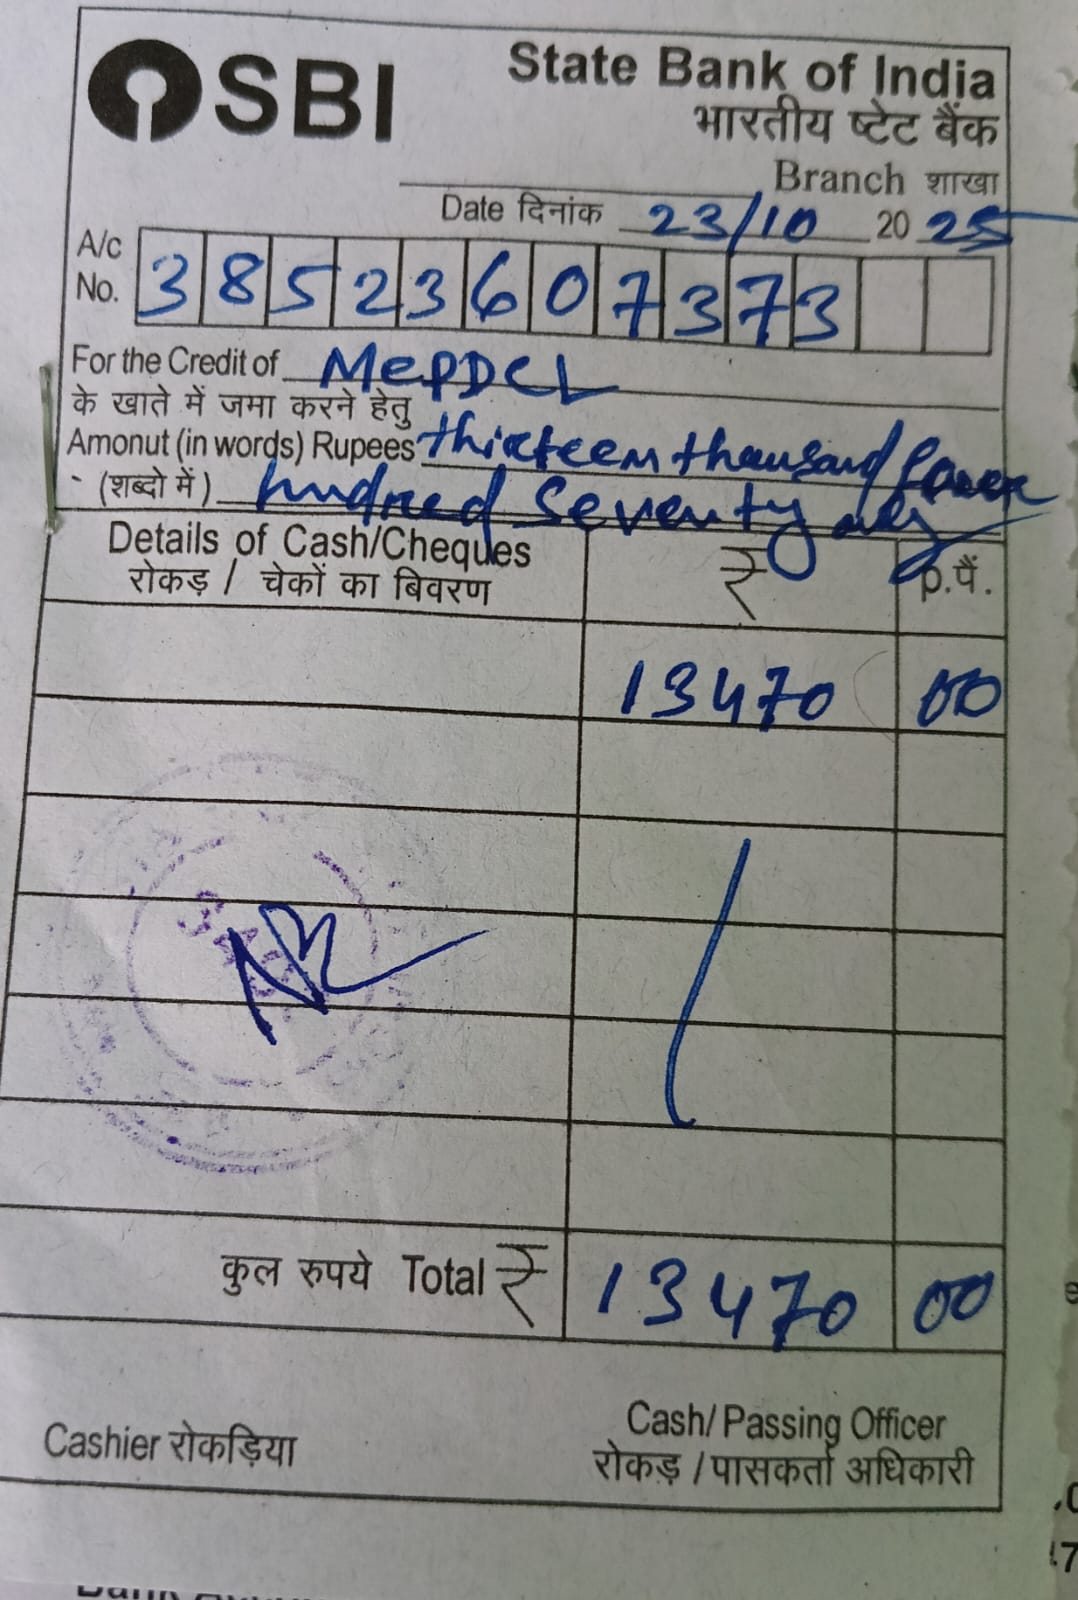 SBI
State Bank of India
भारतीय ष्टेट बैंक
Branch शाखा
Date दिनांक 23/10 2025
A/c No. 38523607373
For the Credit of MePDCL
के खाते में जमा करने हेतु
Amonut (in words) Rupees thirteen thousand four
(शब्दो में) hundred Seventy only
Details of Cash/Cheques ₹ p.पैं.
रोकड़ / चेकों का बिवरण
13470 00
कुल रुपये Total ₹ 13470 00
Cashier रोकड़िया
Cash/ Passing Officer
रोकड़ / पासकर्ता अधिकारी